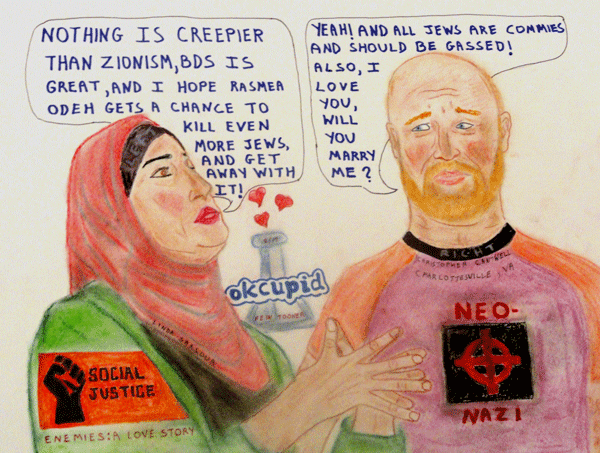 NOTHING IS CREEPIER
THAN ZIONISM, BDS IS
GREAT, AND I HOPE RASMEA
ODEH GETS A CHANCE TO
KILL EVEN
MORE JEWS,
AND GET
AWAY WITH
IT!
YEAH! AND ALL JEWS ARE COMMIES
AND SHOULD BE GASSED!
ALSO, I
LOVE
YOU,
WILL
YOU
MARRY
ME?
okcupid
RIGHT
CHRISTOPHER CANTWELL
CHARLOTTESVILLE, VA
LINDA SARSOUR
NEO-
NAZI
SOCIAL
JUSTICE
ENEMIES: A LOVE STORY